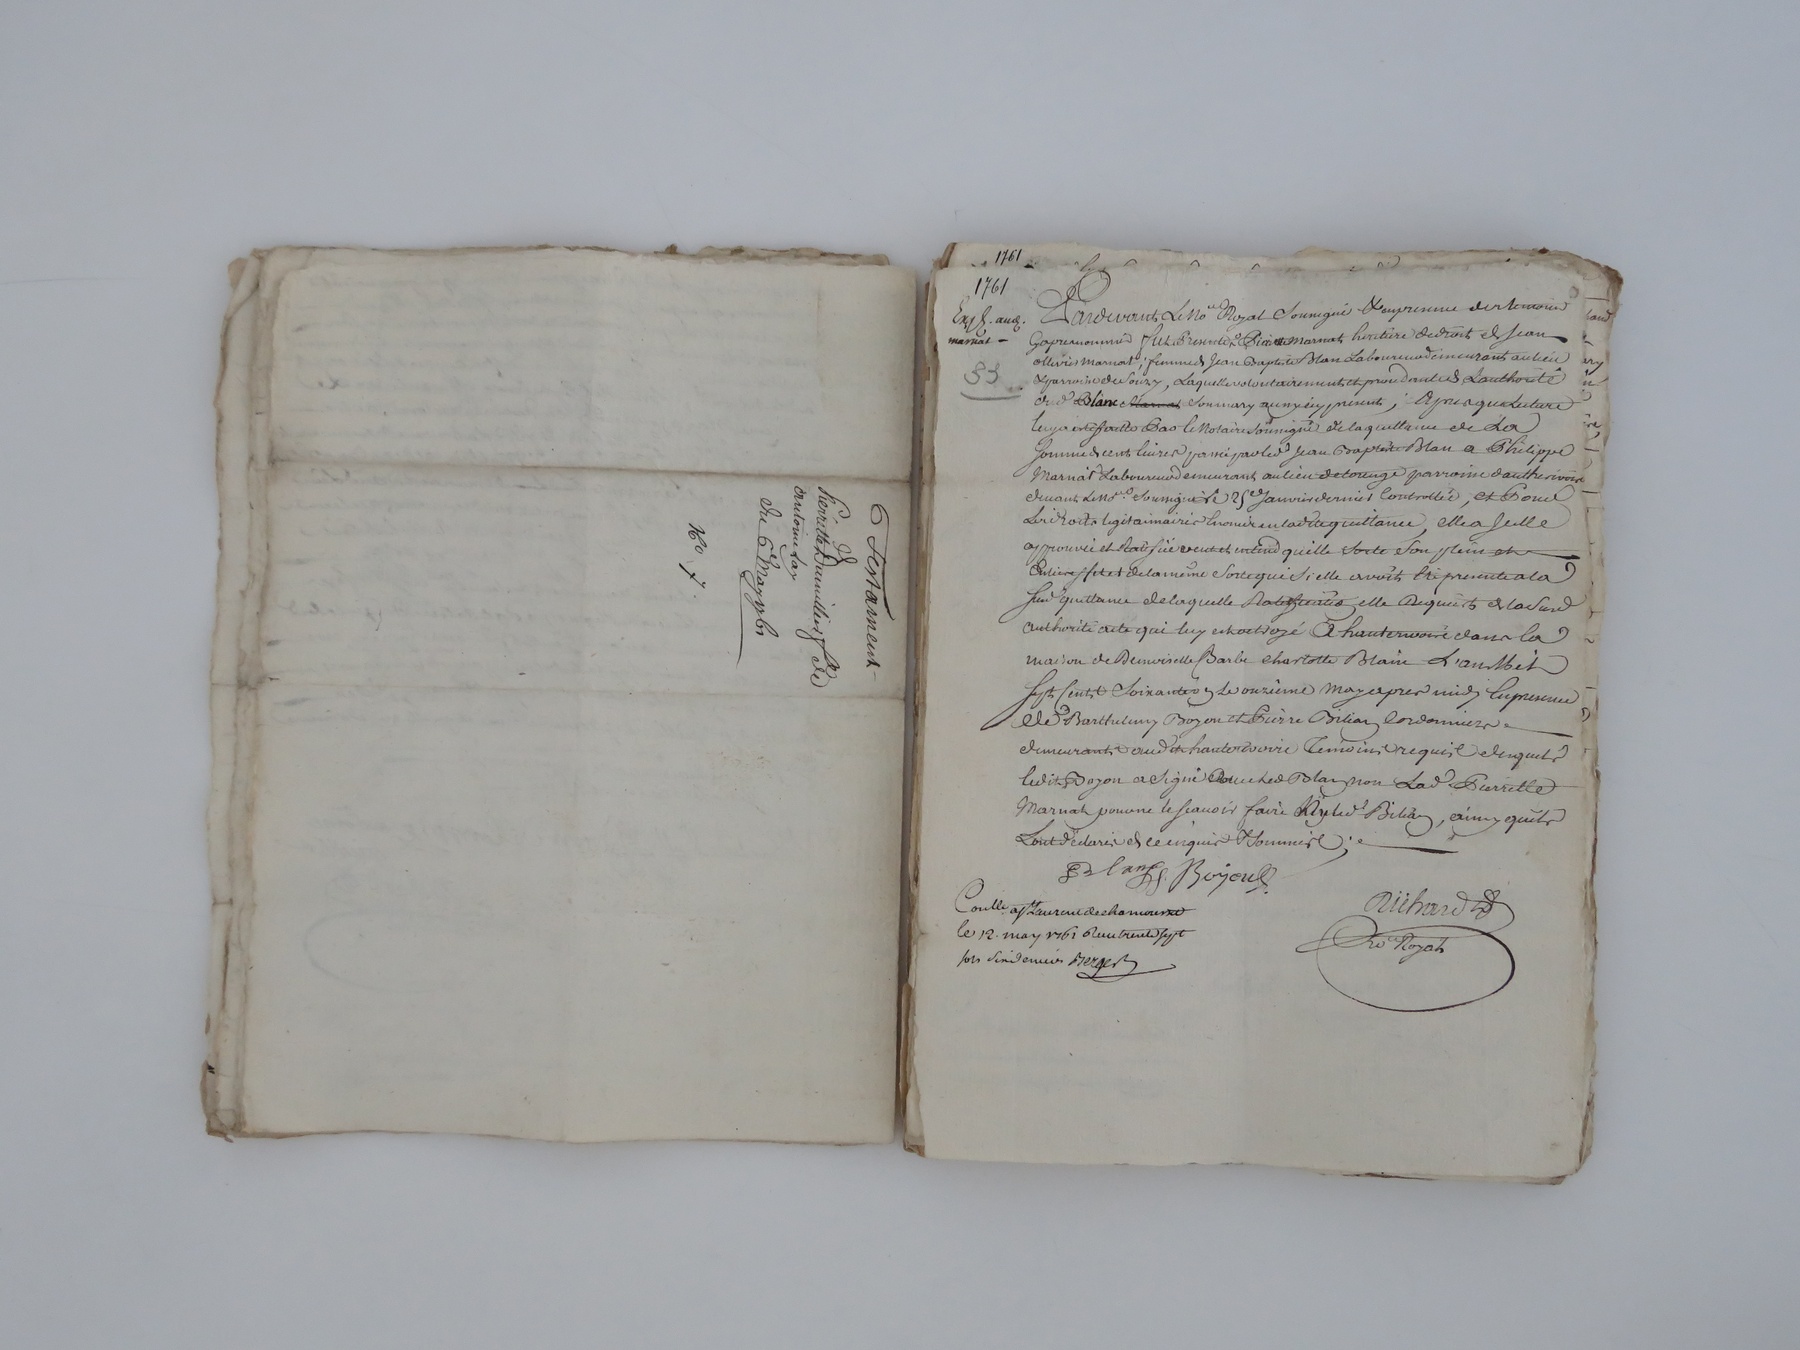 Testament
de
pierrette
antoine Lay
du 6 May
No 7.
1761
1761
Exp. aud.
marnat
53
Pardevant Le No.re Royal Soussigné Et en presence des temoins
Cy apres nommés fut Presente Pierrette Marnat heritiere de droit de Jean
marnat, femme de Jean Baptiste Blan Laboureur demeurant au lieu
& parroisse de Souzy, Laquelle volontairement et procedant de L'authorité
dud. Blanc Son mary aussy icy present, Apres que Lecture
luy a été faitte Par le Notaire Soussigné de la quittance de La
Somme de cent livres passé par led. Jean Baptiste Blan a Philippe
Marnat Laboureur demeurant au lieu de parroisse d'authe rivoire
devant Le No.re Soussigné Le 25e Janvier dernier Controllée, et Pour
Les droits legitimaires enoncés en lad. quittance, elle a Icelle
approuvée et Ratifiée veut et entend qu'elle Sorte Son plein et
Entier effet de la même Sorte que Si elle avoit été presente a la
Susd. quittance de laquelle Ratification elle Requiert de la Susd.
authorité acte qui luy est octroyé A hauterivoire dans la
maison de Demoiselle Barbe charlotte Blain L'an Mil
Sept Cents Soixante un Le onzième May apres midy En presence
de Sr. Barthelemy Boyon et Pierre Cordonniers
demeurants aud. hauterivoire Temoins requis desquels
ledit Boyon a Signé avec led. Blan non Lad. Pierrette
Marnat pour ne le scavoir faire Ny led. , ainsy qu'ils
L'ont déclaré de ce enquis & Sommés
Blanc Boyon
Richard
No.re Royal
Conllé a St Laurent de chamousset
le 12. may 1761 Reçu treize sept
sols Six deniers Berger